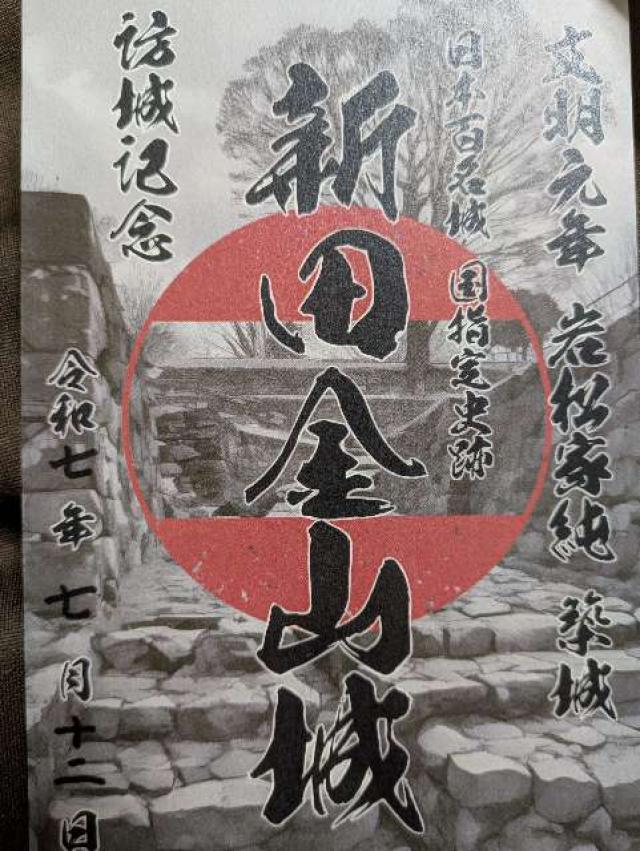 文明元年 岩松家純 築城
日本百名城 国指定史跡
新田金山城
訪城記念
令和七年 七月十二日